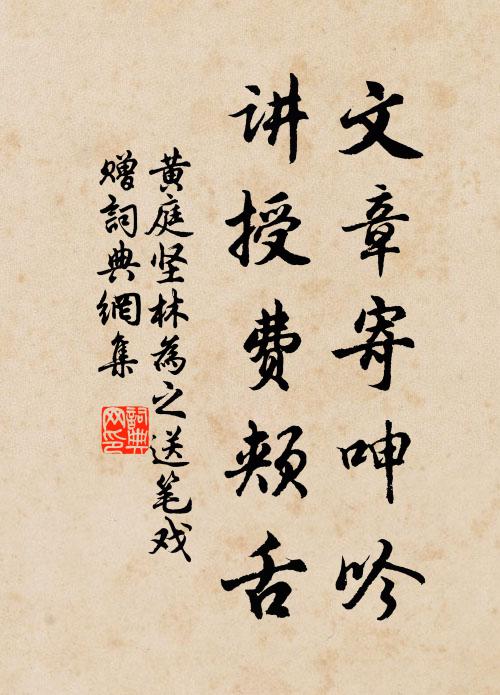 文章寄呻吟
讲授费颊舌
黄庭坚林為之送笔戏
赠詞典網集
詞典网印